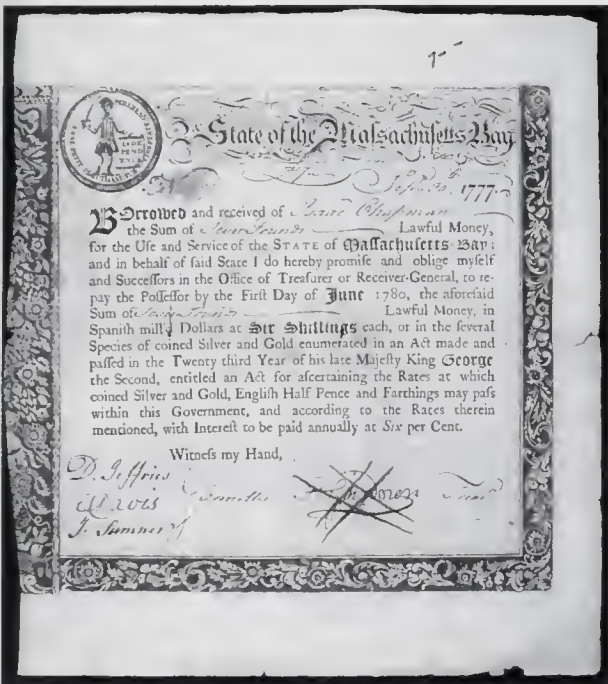 INDE
PEND
ENCE
State of the Maſſachuſetts Bay
1777.
BOrrowed and received of Isaac Chapman
the Sum of Seven Pounds Lawful Money,
for the Uſe and Service of the STATE of Maſſachuſetts-Bay;
and in behalf of ſaid State I do hereby promiſe and oblige myſelf
and Succeſſors in the Office of Treaſurer or Receiver-General, to re-
pay the Poſſeſſor by the Firſt Day of June 1780, the aforeſaid
Sum of Seven Pounds Lawful Money, in
Spaniſh mill'd Dollars at Six Shillings each, or in the ſeveral
Species of coined Silver and Gold enumerated in an Act made and
paſſed in the Twenty third Year of his late Majeſty King George
the Second, entitled an Act for aſcertaining the Rates at which
coined Silver and Gold, Engliſh Half Pence and Farthings may paſs
within this Government, and according to the Rates therein
mentioned, with Intereſt to be paid annually at Six per Cent.
Witneſs my Hand,
D. Jeffries
J. Sumner